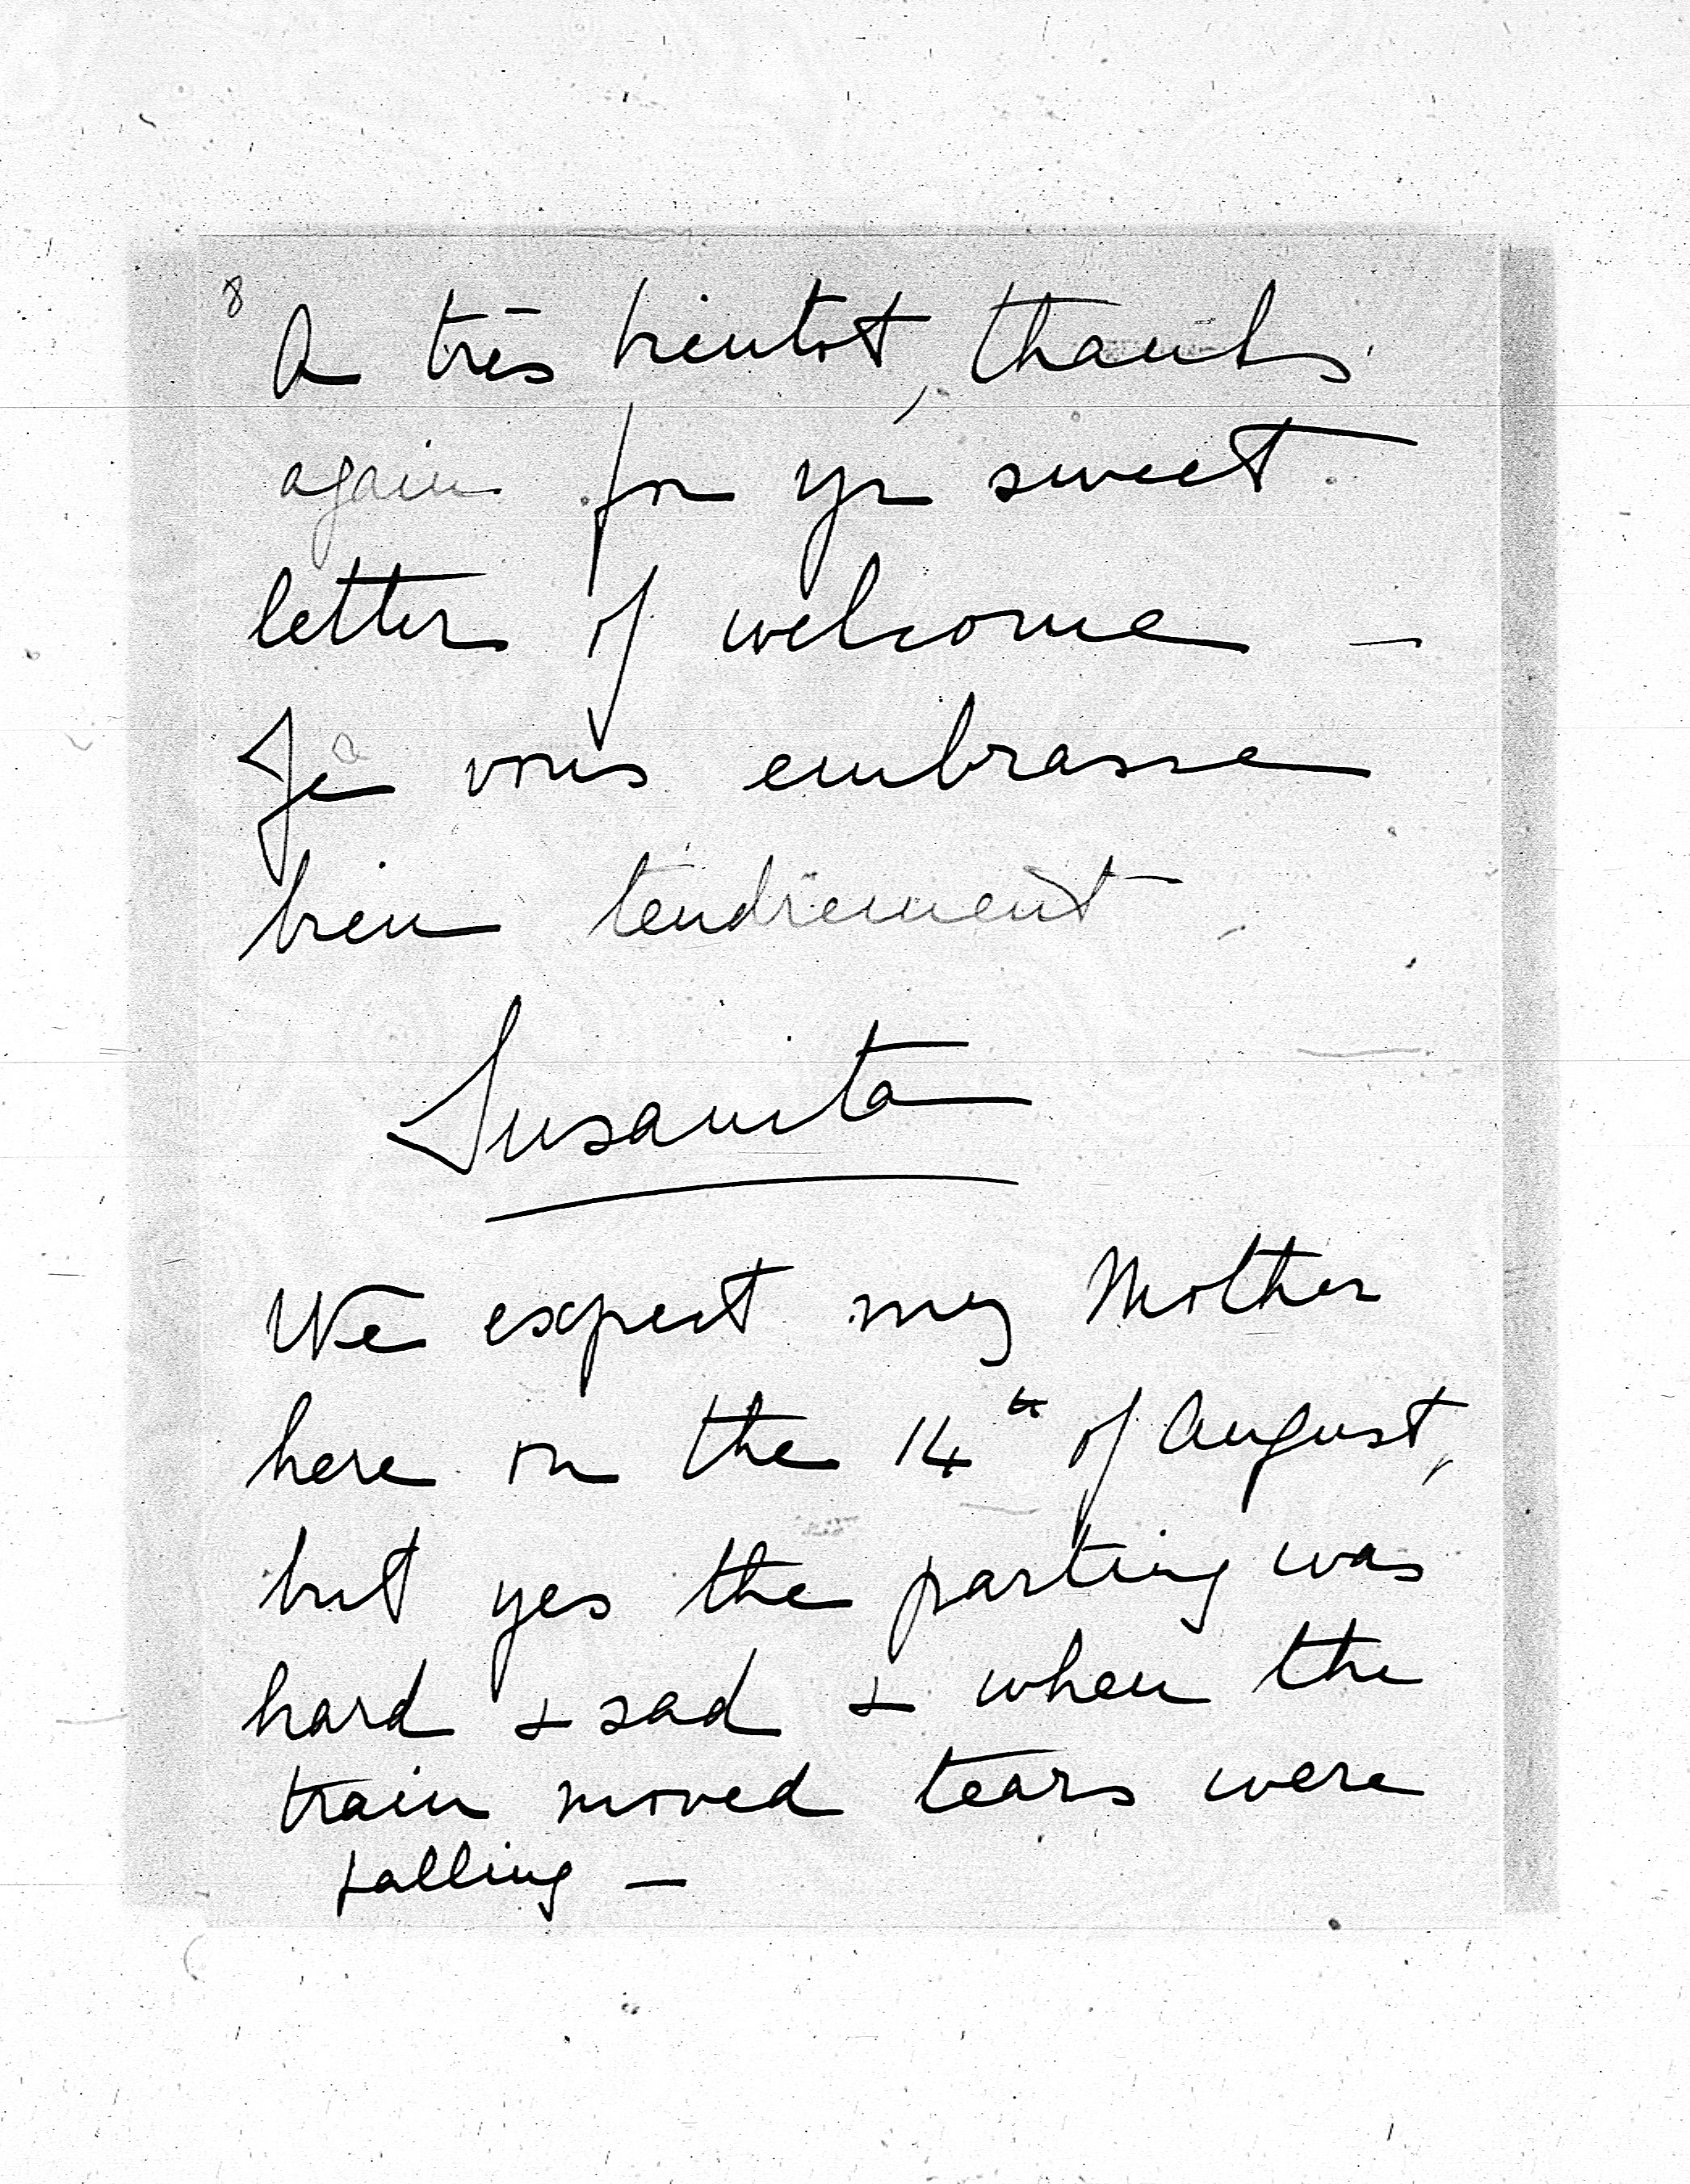 8
A très bientot, thanks
again for yr sweet
letter of welcome —
Je vous embrasse
bien tendrement,
Susanita
We expect my Mother
here on the 14th of August,
but yes the parting was
hard & sad & when the
train moved tears were
falling —